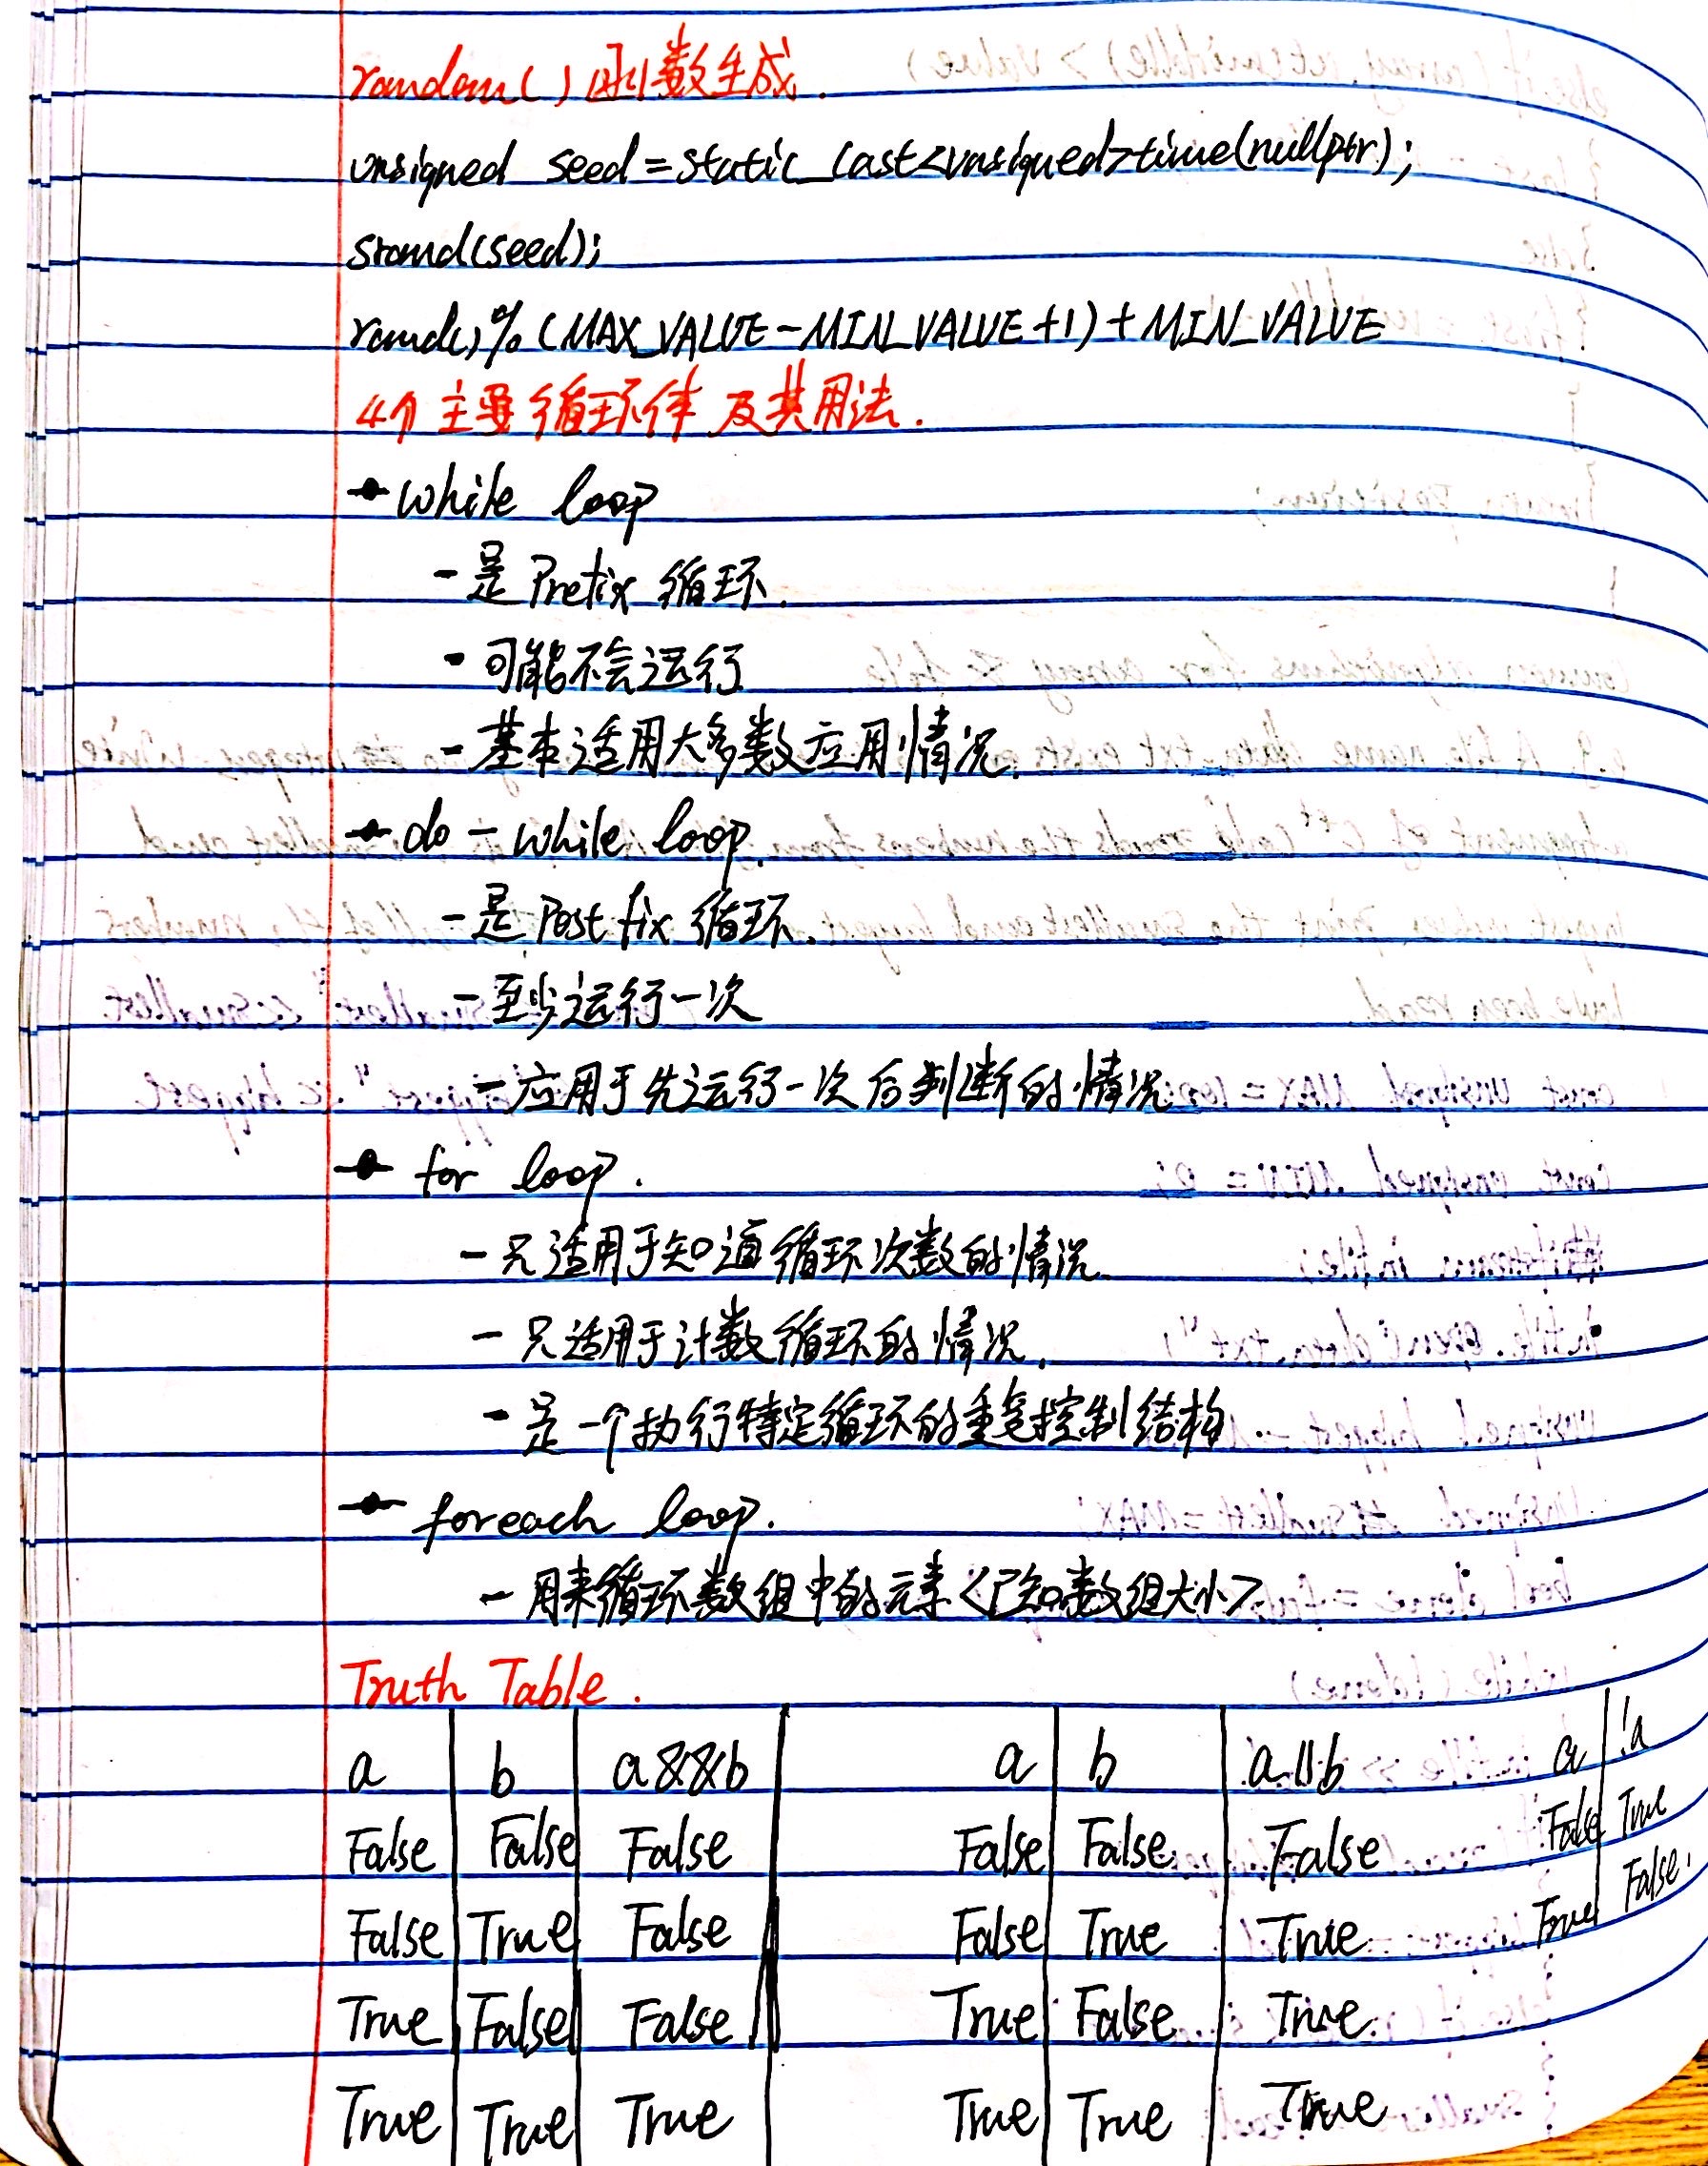 random()随机数生成.
unsigned seed=static_cast<unsigned>time(nullptr);
srand(seed);
rand()%(MAX_VALUE-MIN_VALUE+1)+MIN_VALUE
4个主要循环体及其用法.
while loop
-是Prefix循环.
-可能不会运行
-基本适用大多数应用情况.
do-while loop.
-是Postfix循环.
-至少运行一次
-应用于先运行一次后判断的情况
for loop.
-只适用于知道循环次数的情况.
-只适用于计数循环的情况.
-是一个执行特定循环的重复控制结构.
foreach loop.
-用来循环数组中的元素<已知数组大小>
Truth Table.
a b a&&b a b a||b a !a
False False False False False False False True
False True False False True True True False.
True False False True False True
True True True True True True